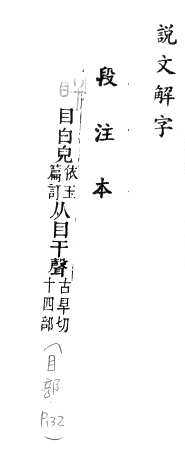 說文解字
段注本
目白皃依玉篇訂从目干聲古旱切十四部
(目部
P.132)